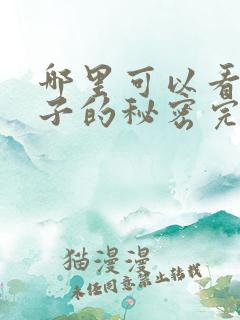 哪里可以看
子的秘密完
猫漫漫
未经同意禁止转载